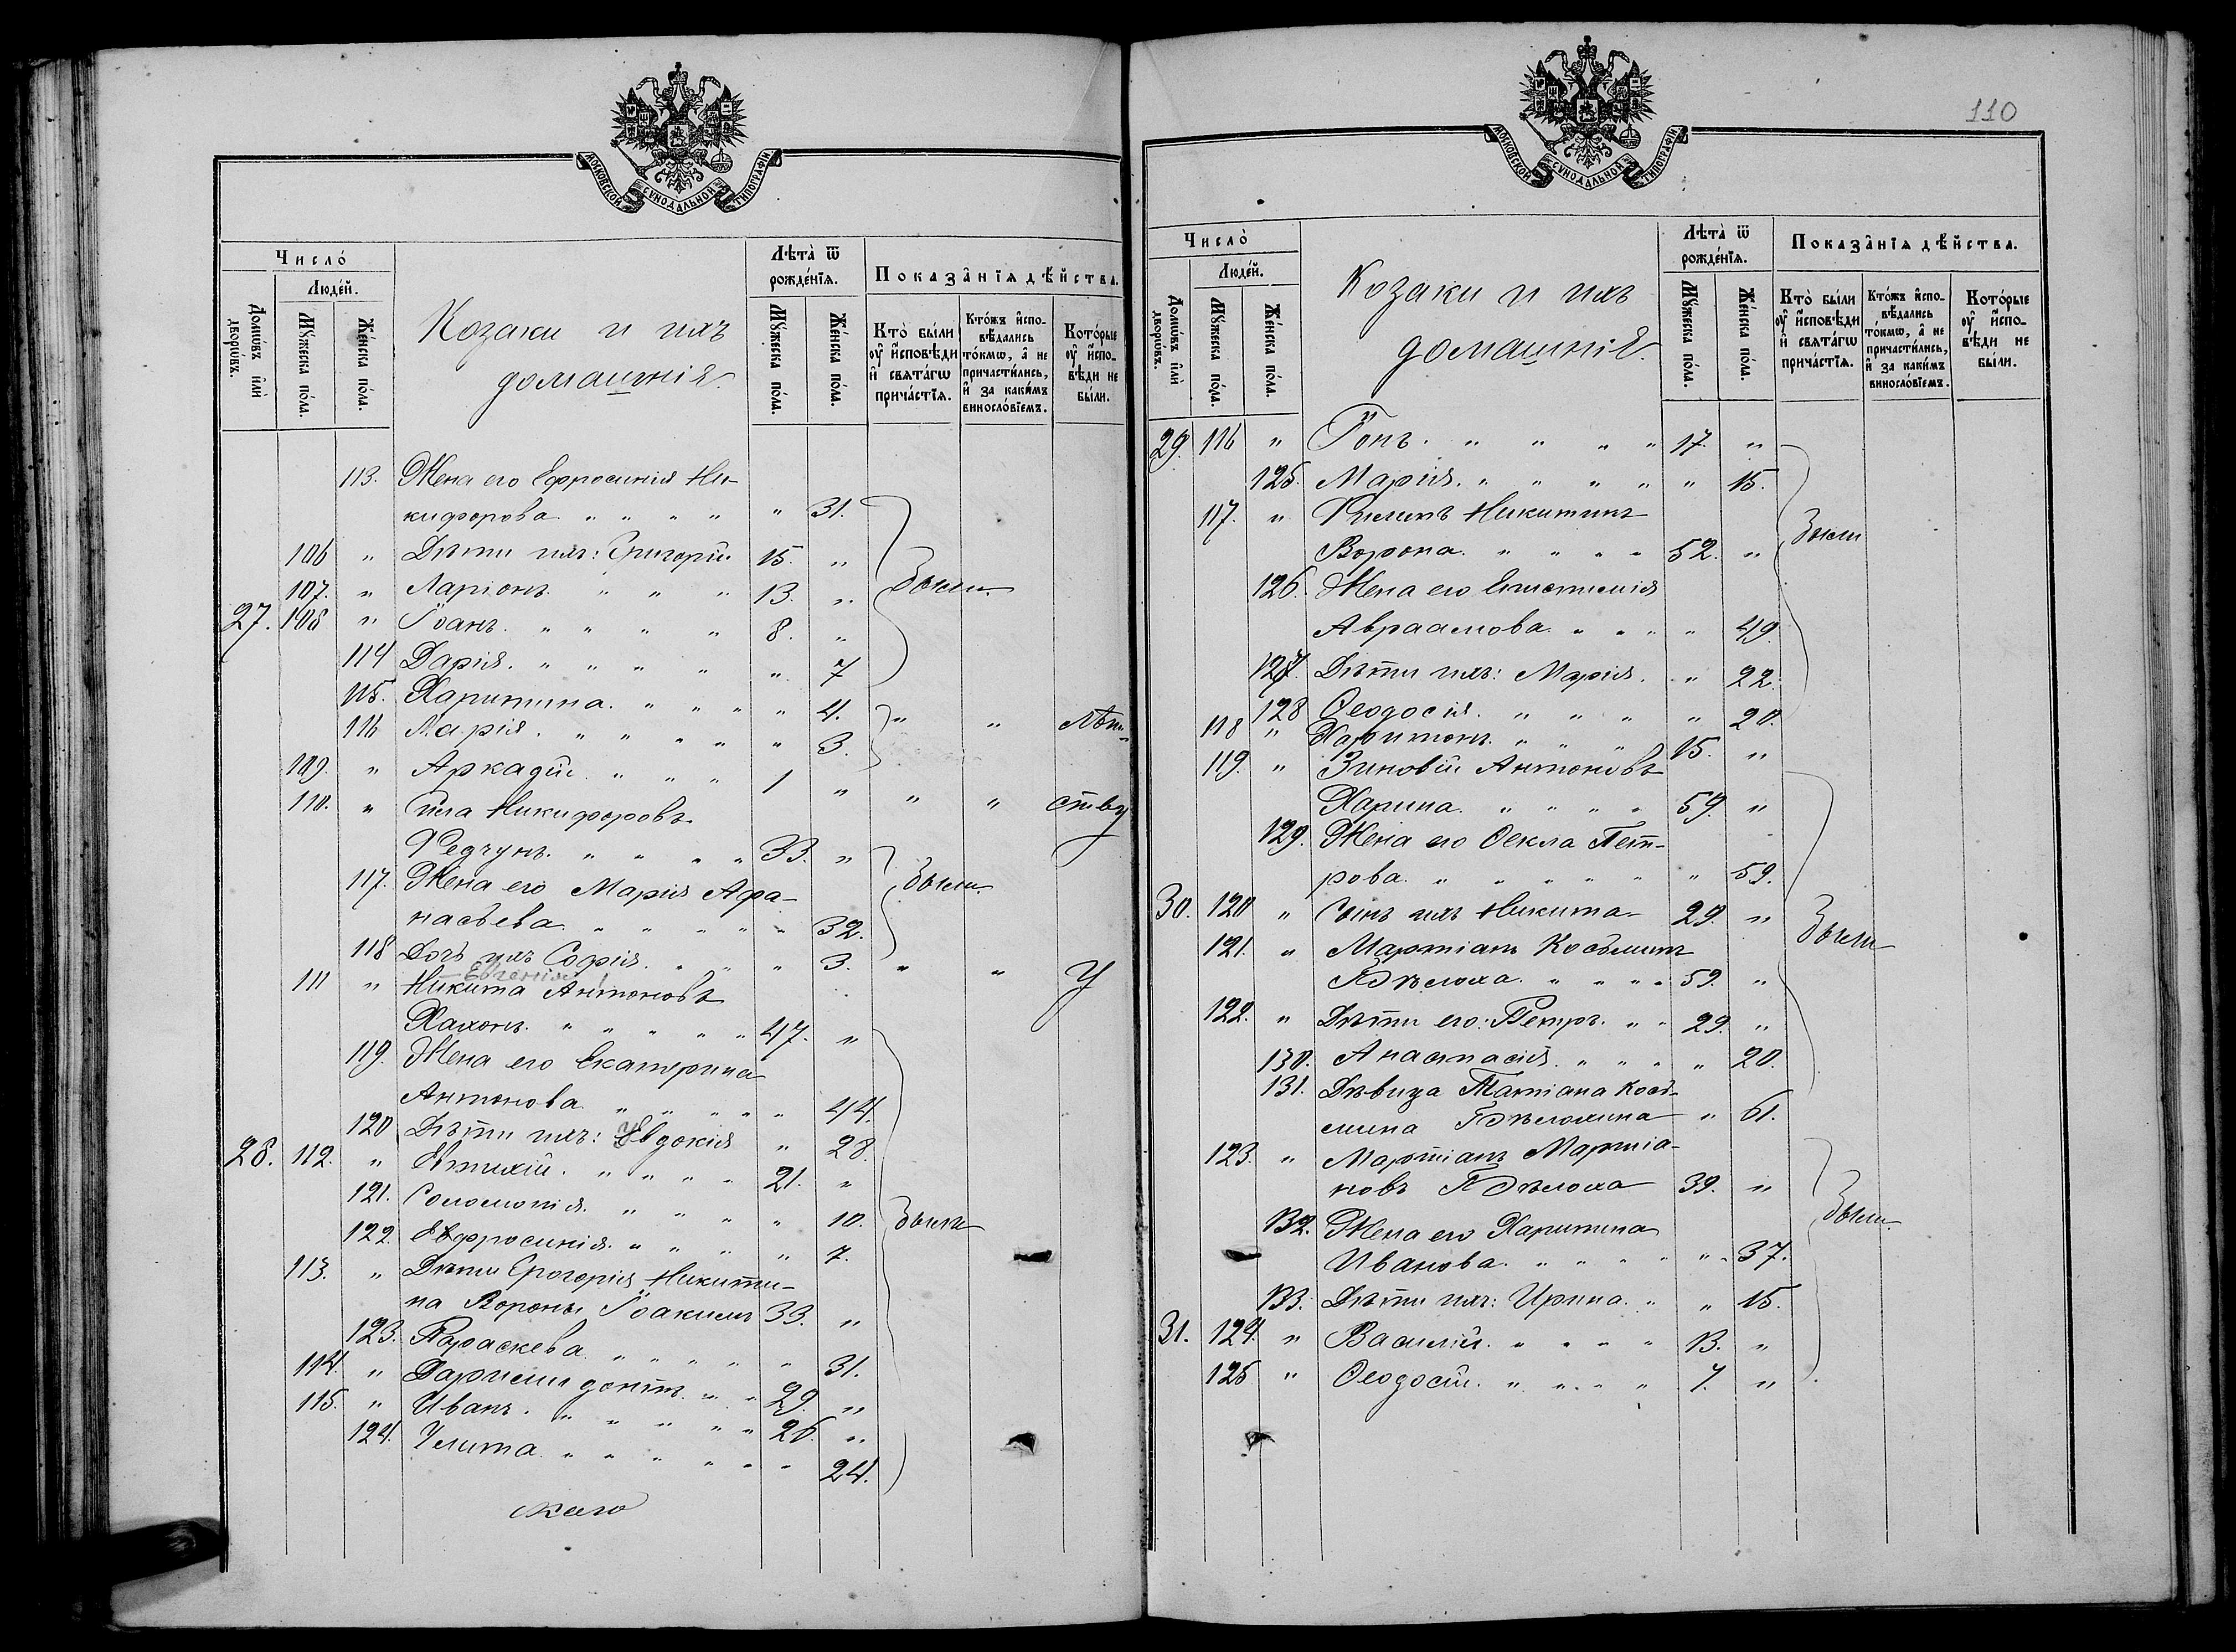 МОСКОВСКОЙ СѴНОДАЛЬНОЙ ТИПОГРАФІИ
Число̀
Люде́й.
Домѡ́въ и҆лѝ дворѡ́въ.
Мꙋ́жеска по́ла.
Же́нска по́ла.
Козаки и ихъ
домашнія.
Лѣта̀ ѿ рожде́нїѧ.
Мꙋ́жеска по́ла.
Же́нска по́ла.
Показа̑нїѧ дѣ́йства.
Кто̀ бы́ли ᲂу҆ и҆сповѣ́ди и҆ свѧта́гѡ прича́стїѧ.
Кто́жъ и҆сповѣ́дались то́кмѡ, а҆ не причасти́лись, и҆ за каки́мъ винослові́емъ.
Кото́рые ᲂу҆ и҆сповѣ́ди не бы́ли.
113. Жена его Ефросинія Ни-
кифорова " " " " " 31.
106 " Дѣти ихъ: Григорій 15. "
107. " Ларіонъ " " " 13. " были
27. 108 " Іоанъ. " " " " 8. "
114 Дарія. " " " " " 7
115. Харитина. " " " " 4. " " Лѣт-
116 Марія. " " " " " 3.
109. " Аркадій " " " 1 " " " ству
110. " Сила Никифоровъ
Федчунъ. " " " " 33. "
117. Жена его Марія Афа- были
насьева " " " " " 32.
118 Дочь ихъ Софія. " " " 3. " " У
Евгенія
111 " Никита Антоновъ
Хахонъ. " " " " " 47. "
119. Жена его Екатерина
Антонова " " " " " 44.
120 Дѣти ихъ: Евдокія " 28.
28. 112. " Евтихій. " " " " 21. "
121. Соломонія. " " " " 10. были
122. Евфросинія. " " " " 7.
113. " Дѣти Григорія Никити-
на Вороны Іоакимъ 33. "
123. Параскева " " " " " 31.
114. " " " 29. "
115. " Иванъ. " " " " " 26. "
124. Улита. " " " " " " 24.
110
МОСКОВСКОЙ СѴНОДАЛЬНОЙ ТИПОГРАФІИ
Число̀
Люде́й.
Домѡ́въ и҆лѝ дворѡ́въ.
Мꙋ́жеска по́ла.
Же́нска по́ла.
Козаки и ихъ
домашнія.
Лѣта̀ ѿ рожде́нїѧ.
Мꙋ́жеска по́ла.
Же́нска по́ла.
Показа̑нїѧ дѣ́йства.
Кто̀ бы́ли ᲂу҆ и҆сповѣ́ди и҆ свѧта́гѡ прича́стїѧ.
Кто́жъ и҆сповѣ́дались то́кмѡ, а҆ не причасти́лись, и҆ за каки́мъ винослові́емъ.
Кото́рые ᲂу҆ и҆сповѣ́ди не бы́ли.
29. 116 " " " " " 17. "
125. Марія. " " " " " 15.
117. " Филипъ Никитинъ были
Ворона. " " " " 52. "
126. Жена его Епистимія
Авраамова. " " " " 49.
127. Дѣти ихъ: Марія. " 22.
128 Ѳеодосія. " " " " 20.
118 " Харитонъ. " " " 15. "
119. " Зиновій Антоновъ
Харина. " " " " 59. "
129. Жена его Ѳекла Пет-
рова. " " " " " " 59.
30. 120 " Сынъ ихъ Никита 29. " были
121. " Мартіанъ Косьминъ
" " " " 59. "
122. " Дѣти его: Петръ. " " 29. "
130. Анастасія. " " " " 20.
131. Дѣвица Татіана Кось-
мина " 61.
123. " Мартіанъ Мартіа-
новъ 39. "
132. Жена его Харитина были
Иванова. " " " " " 37.
133. Дѣти ихъ: Ирина. " " 15.
31. 124. " Василій. " " " " 13. "
125 " Ѳеодосій. " " " " 7. "